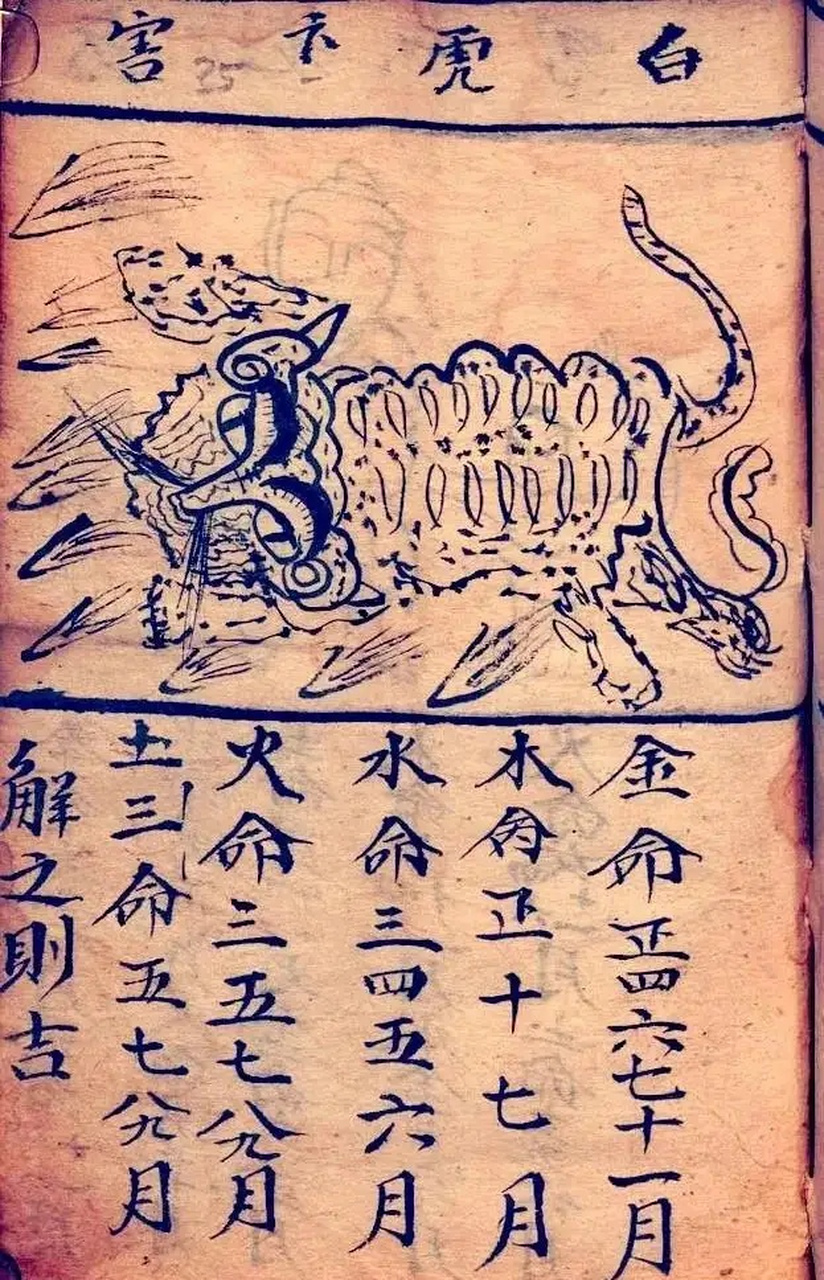 白虎卞害
25
金命正四六七十一月
木命正十七月
水命三四五六月
火命三五七八九月
土三命五七八九月
解之則吉